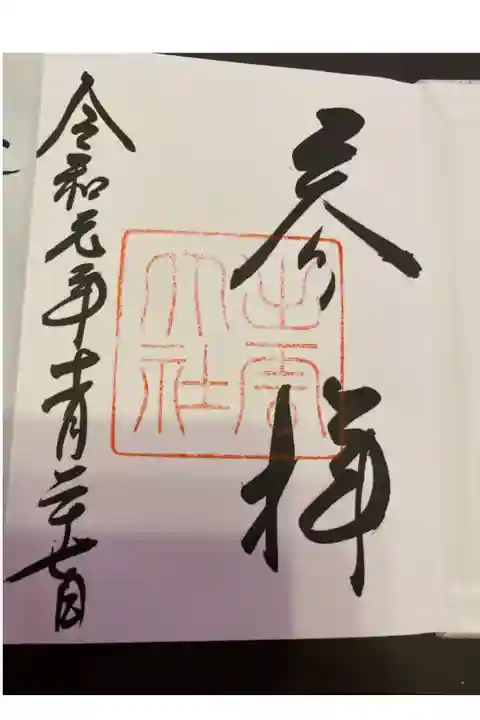 参拝
出雲
大社
令和元年十一月二十七日